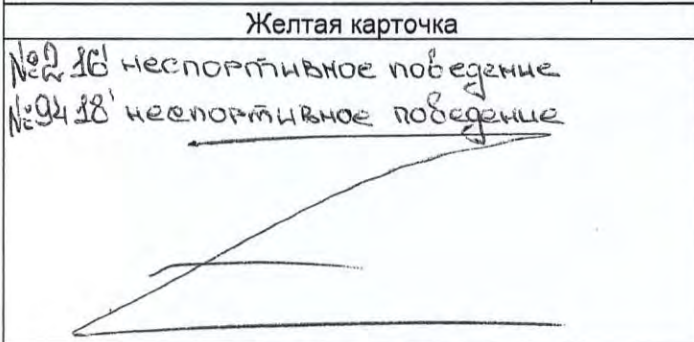 Желтая карточка
№2 16' неспортивное поведение
№94 18' неспортивное поведение